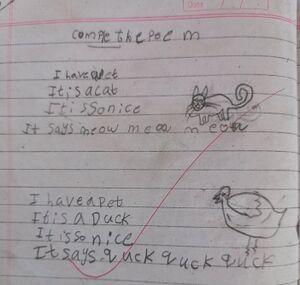 Date
compe the poe m
I have a pet
It is a cat
It is so nice
It says meow meoa meoa
I have a pet
It is a Duck
It is so nice
It says quck quck quck